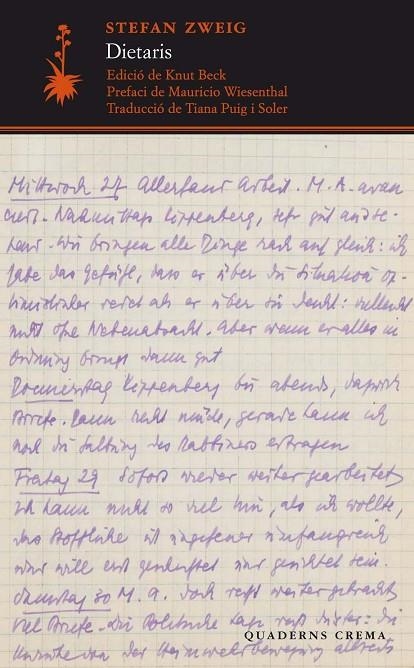 STEFAN ZWEIG
Dietaris
Edició de Knut Beck
Prefaci de Mauricio Wiesenthal
Traducció de Tiana Puig i Soler
Mittwoch 27 Allerhand Arbeit. M. A. avan
ciert. Nachmittags Kippenberg, sehr gut
Wir bringen alle Dinge rasch auf gleich: ich
habe das Gefühl, dass er über die Situation op-
timistischer redet als er über sie denkt: vielleicht
nicht ohne Nebenabsicht. Aber wenn er alles in
Ordnung bringt dann gut
Donnerstag Kippenberg bis abends, dazwischen
Briefe. Dann recht müde, gerade kann ich
noch die des Rabbiners ertragen
Freitag 29 Sofort wieder weitergearbeitet
Ich kann nicht so viel tun, als ich wollte,
das Stoffliche ist ungeheuer umfangreich
und will erst und gesichtet sein.
Samstag 30 M. A. doch recht weiter gebracht
Viel Briefe. Die Politische Lage recht düster: die
von der Heimwehrbewegung
QUADERNS CREMA